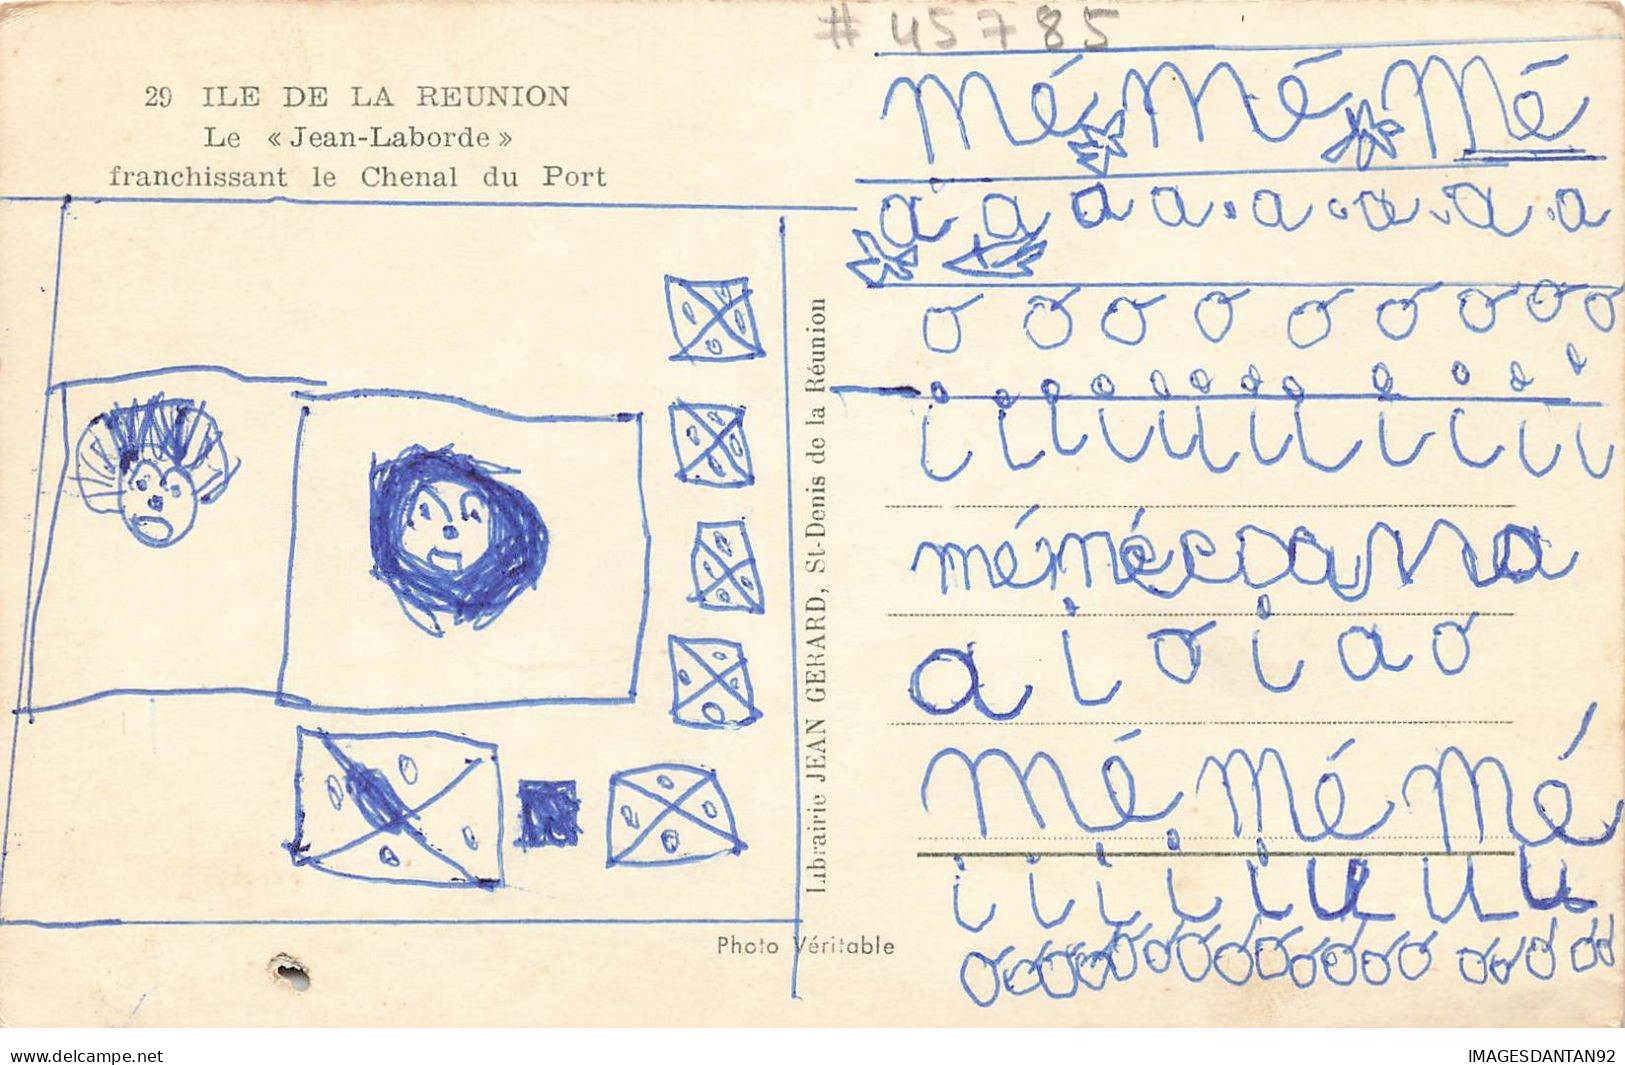 # 45785
29 ILE DE LA REUNION
Le « Jean-Laborde »
franchissant le Chenal du Port
Mé Mé Mé
a a a a a a a a
o o o o o o o o o
i i i i i i i i i i i i
a i o i a o
Mé Mé Mé
Librairie JEAN GERARD, St-Denis de la Réunion
Photo Véritable
www.delcampe.net
IMAGESDANTAN92